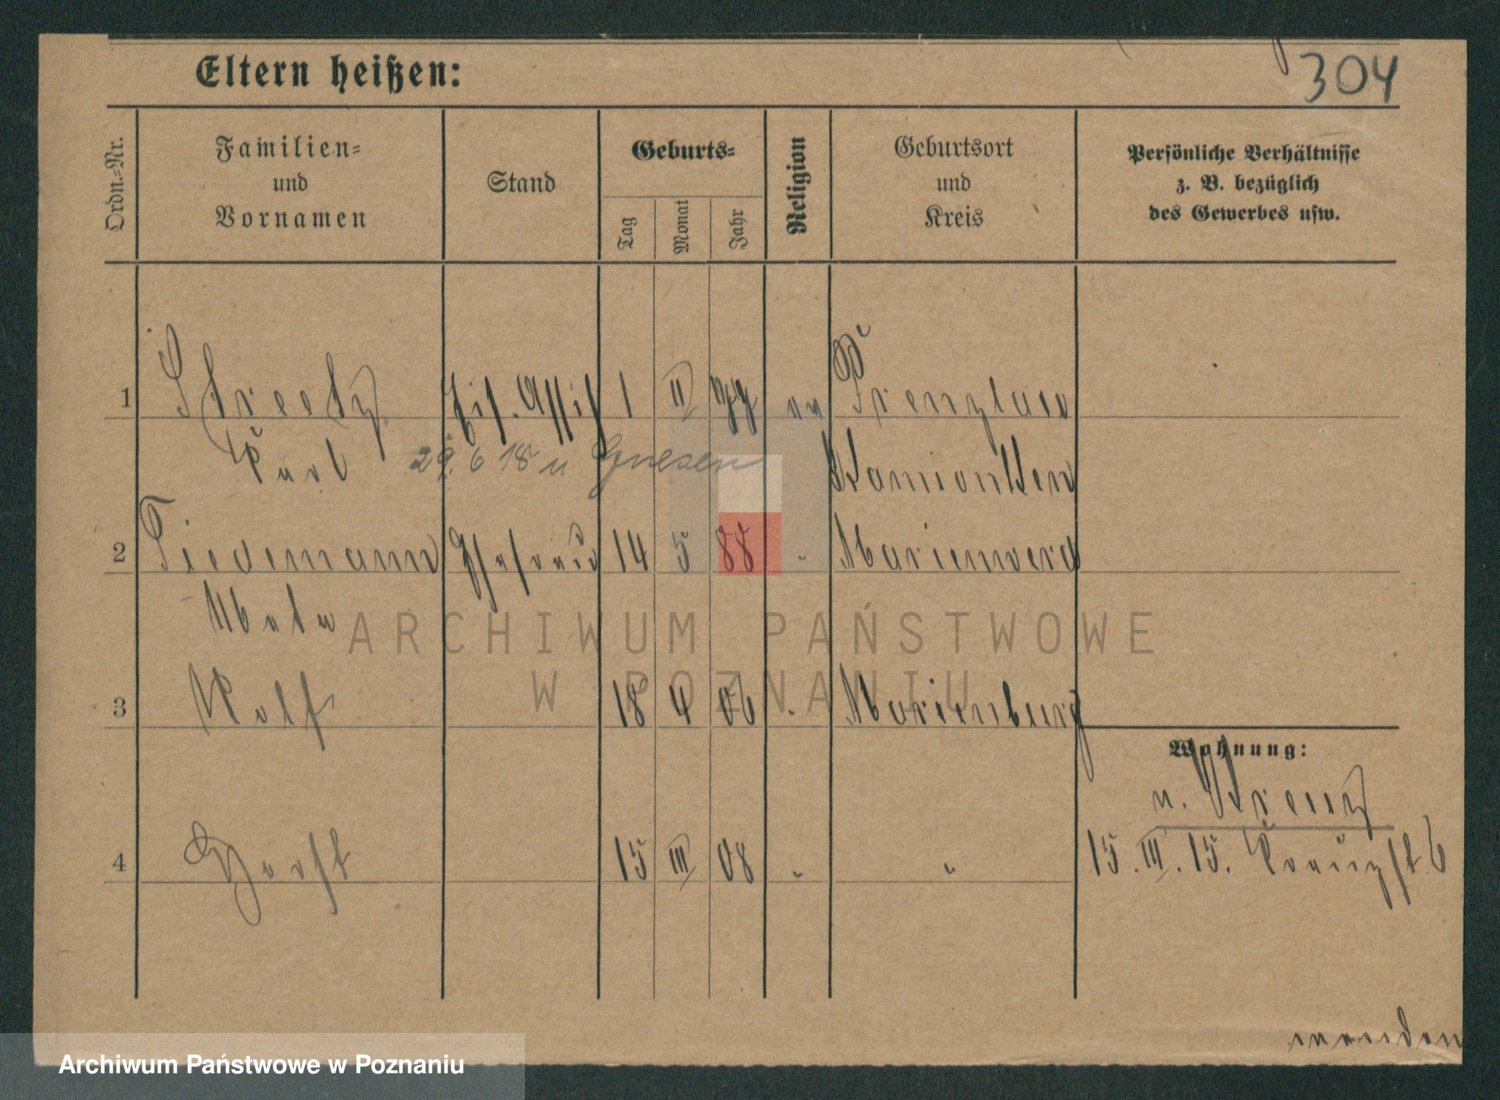 Eltern heißen:
304
Ordn.-Nr.
Familien-
und
Vornamen
Stand
Geburts-
Tag
Monat
Jahr
Religion
Geburtsort
und
Kreis
Persönliche Verhältnisse
z. B. bezüglich
des Gewerbes usw.
1 Streetz Eis. Assist 1 II 77 ev Prenzlau
Karl 29. 6 18 n Gnesen Kamionken
2 Tiedemann Ehefrau 14 5 88 " Marienwerd
Meta
ARCHIWUM PAŃSTWOWE
W POZNANIU
3 Rolf 18 4 06 " Marienburg
Wohnung:
n. Kreuz
4 Horst 15 III 08 " " 15. III. 15. Kreuzst 6
wenden
Archiwum Państwowe w Poznaniu